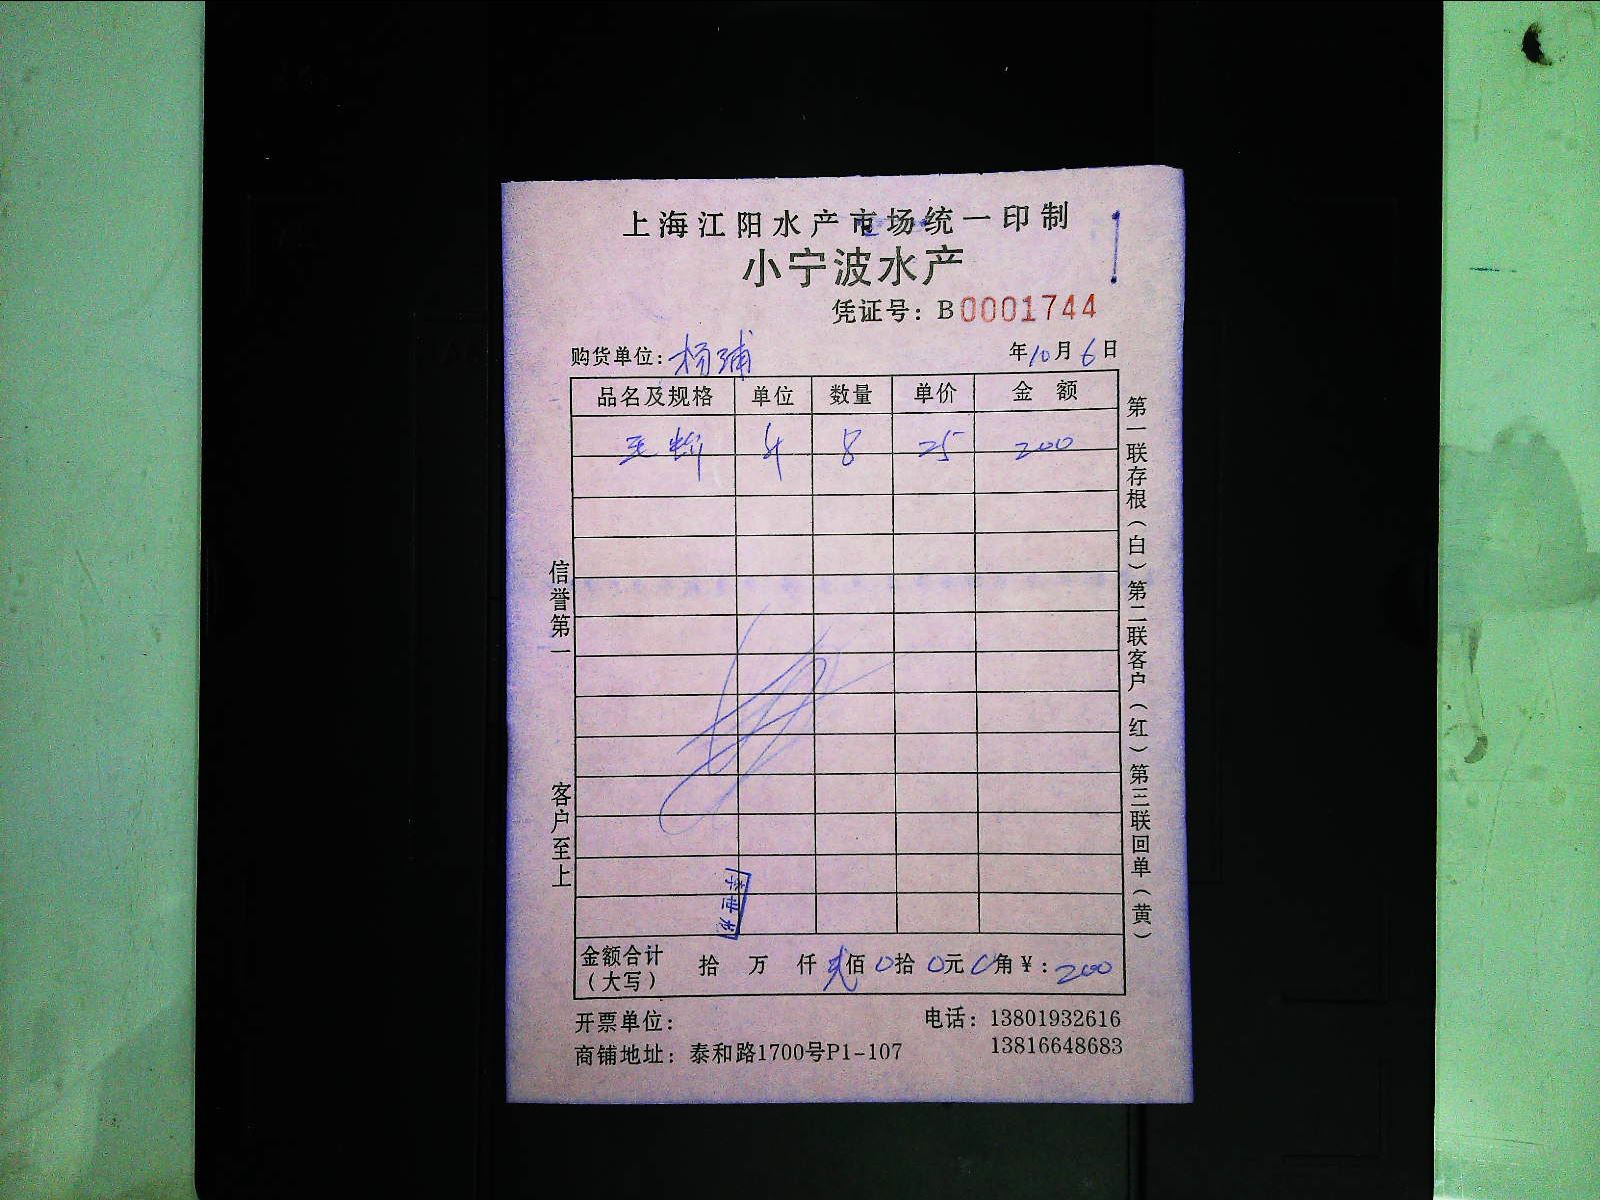 上海江阳水产市场统一印制
小宁波水产
凭证号：B0001744
购货单位：杨浦 年10月6日
品名及规格 单位 数量 单价 金额
斤 8 25 200
信誉第一
客户至上
第一联存根（白）第二联客户（红）第三联回单（黄）
金额合计（大写） 拾 万 仟 贰佰 0拾 0元 0角 ¥：200
开票单位： 电话：13801932616
商铺地址：泰和路1700号P1-107 13816648683